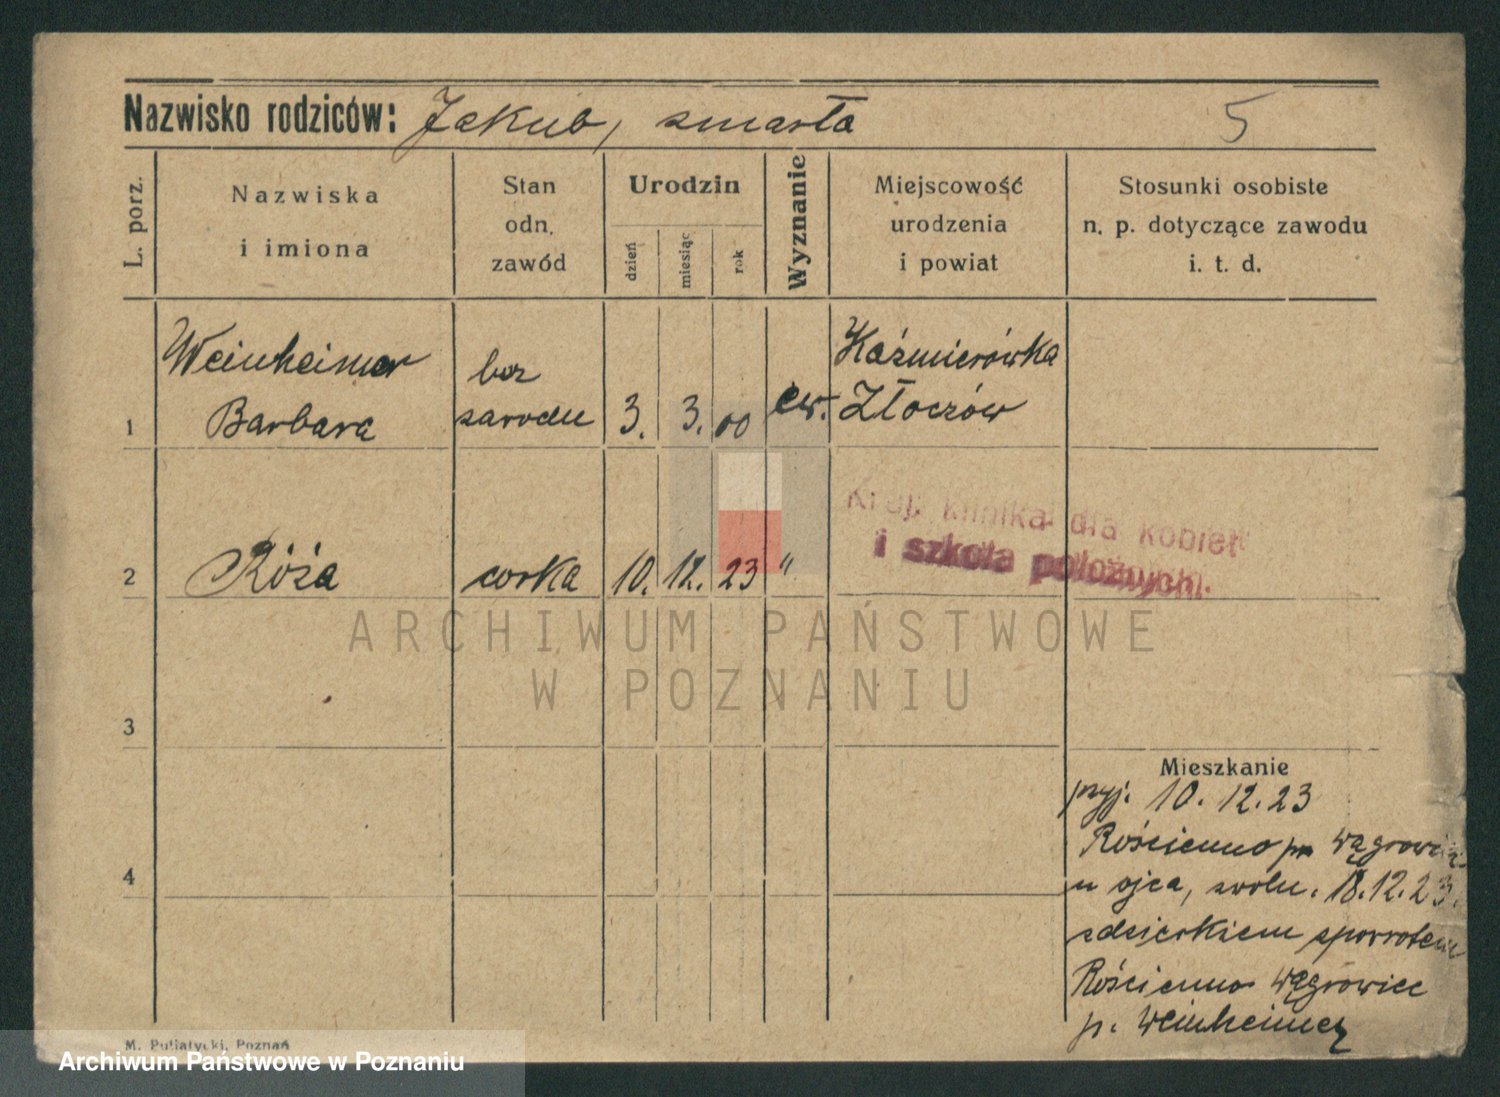 Nazwisko rodziców: Jakub, zmarła 5
L. porz.
Nazwiska
i imiona
Stan
odn.
zawód
Urodzin
dzień
miesiąc
rok
Wyznanie
Miejscowość
urodzenia
i powiat
Stosunki osobiste
n. p. dotyczące zawodu
i. t. d.
1
Weinheimer
Barbara
bez
zawodu
3. 3. 00
ew.
Kaźmierówka
Złoczów
2 Róża córka 10. 12. 23 "
Kraj. klinika dla kobiet
i szkoła położnych.
ARCHIWUM PAŃSTWOWE
W POZNANIU
3
4
Mieszkanie
przyj. 10. 12. 23
Rościenno pow Wągrowiec
u ojca, zwoln. 18.12.23.
z dzieckiem zpowrotem
Rościenno Wągrowiec
p. Weinheimer
M. Putiatycki, Poznań
Archiwum Państwowe w Poznaniu